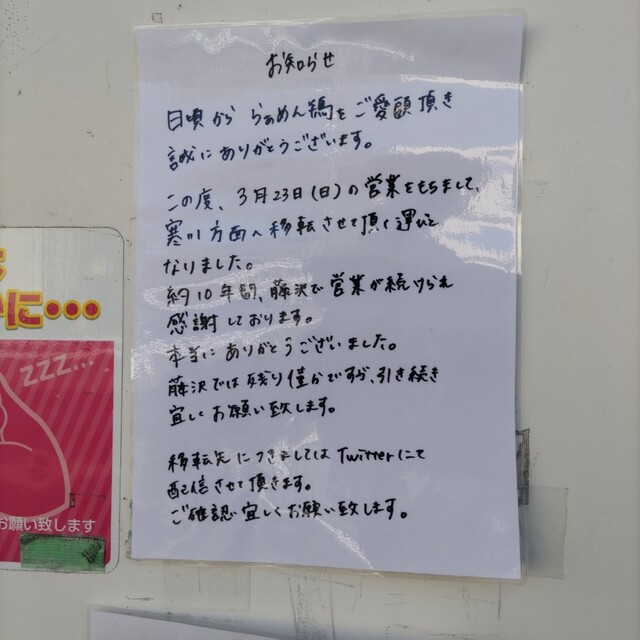 お知らせ
日頃から らぁめん鶏をご愛顧頂き
誠にありがとうございます。
この度、3月23日(日)の営業をもちまして、
寒川方面へ移転させて頂く運びと
なりました。
約10年間、藤沢で営業が続けられ
感謝しております。
本当にありがとうございました。
藤沢では残り僅かですが、引き続き
宜しくお願い致します。
移転先につきましてはTwitterにて
配信させて頂きます。
ご確認宜しくお願い致します。
に…
ZZZ...
お願い致します